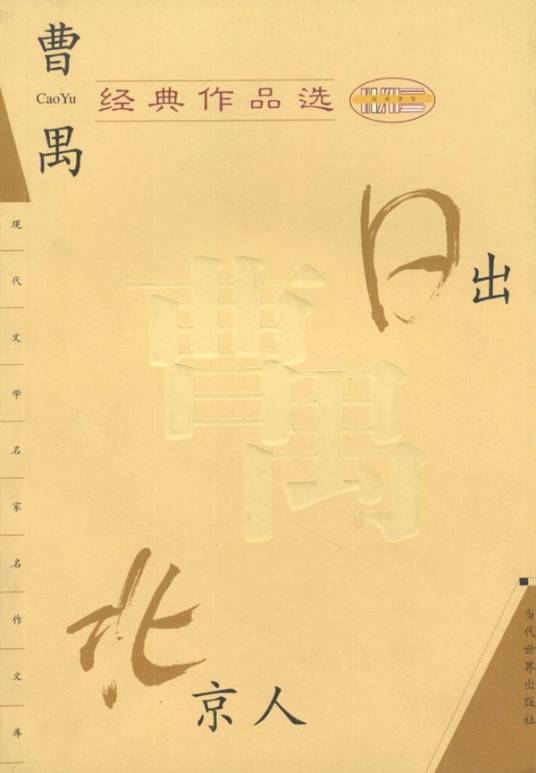 曹禺
CaoYu
经典作品选
日出
曹禺
北京人
现代文学名家名作文库
当代世界出版社